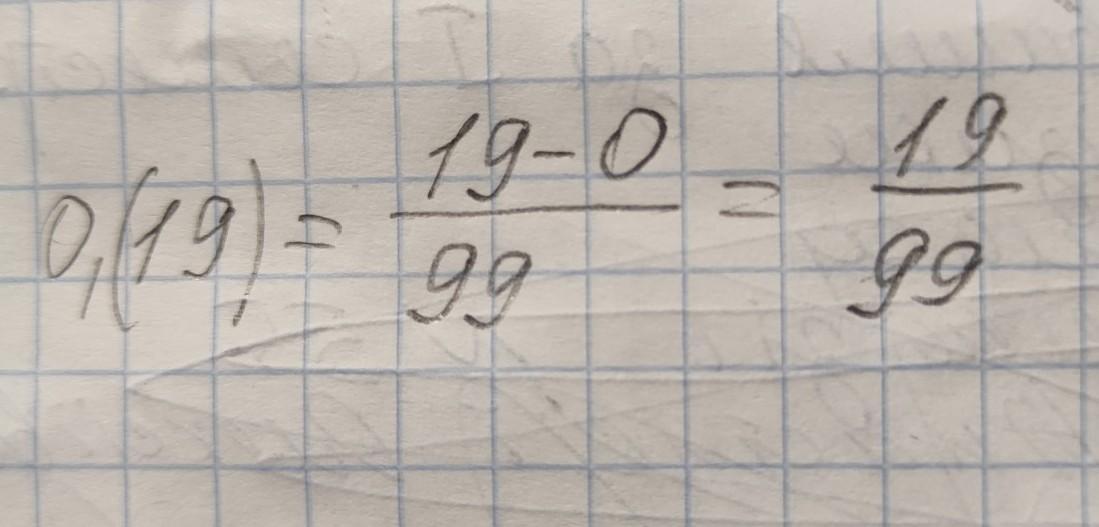 0,(19) = \frac{19-0}{99} = \frac{19}{99}